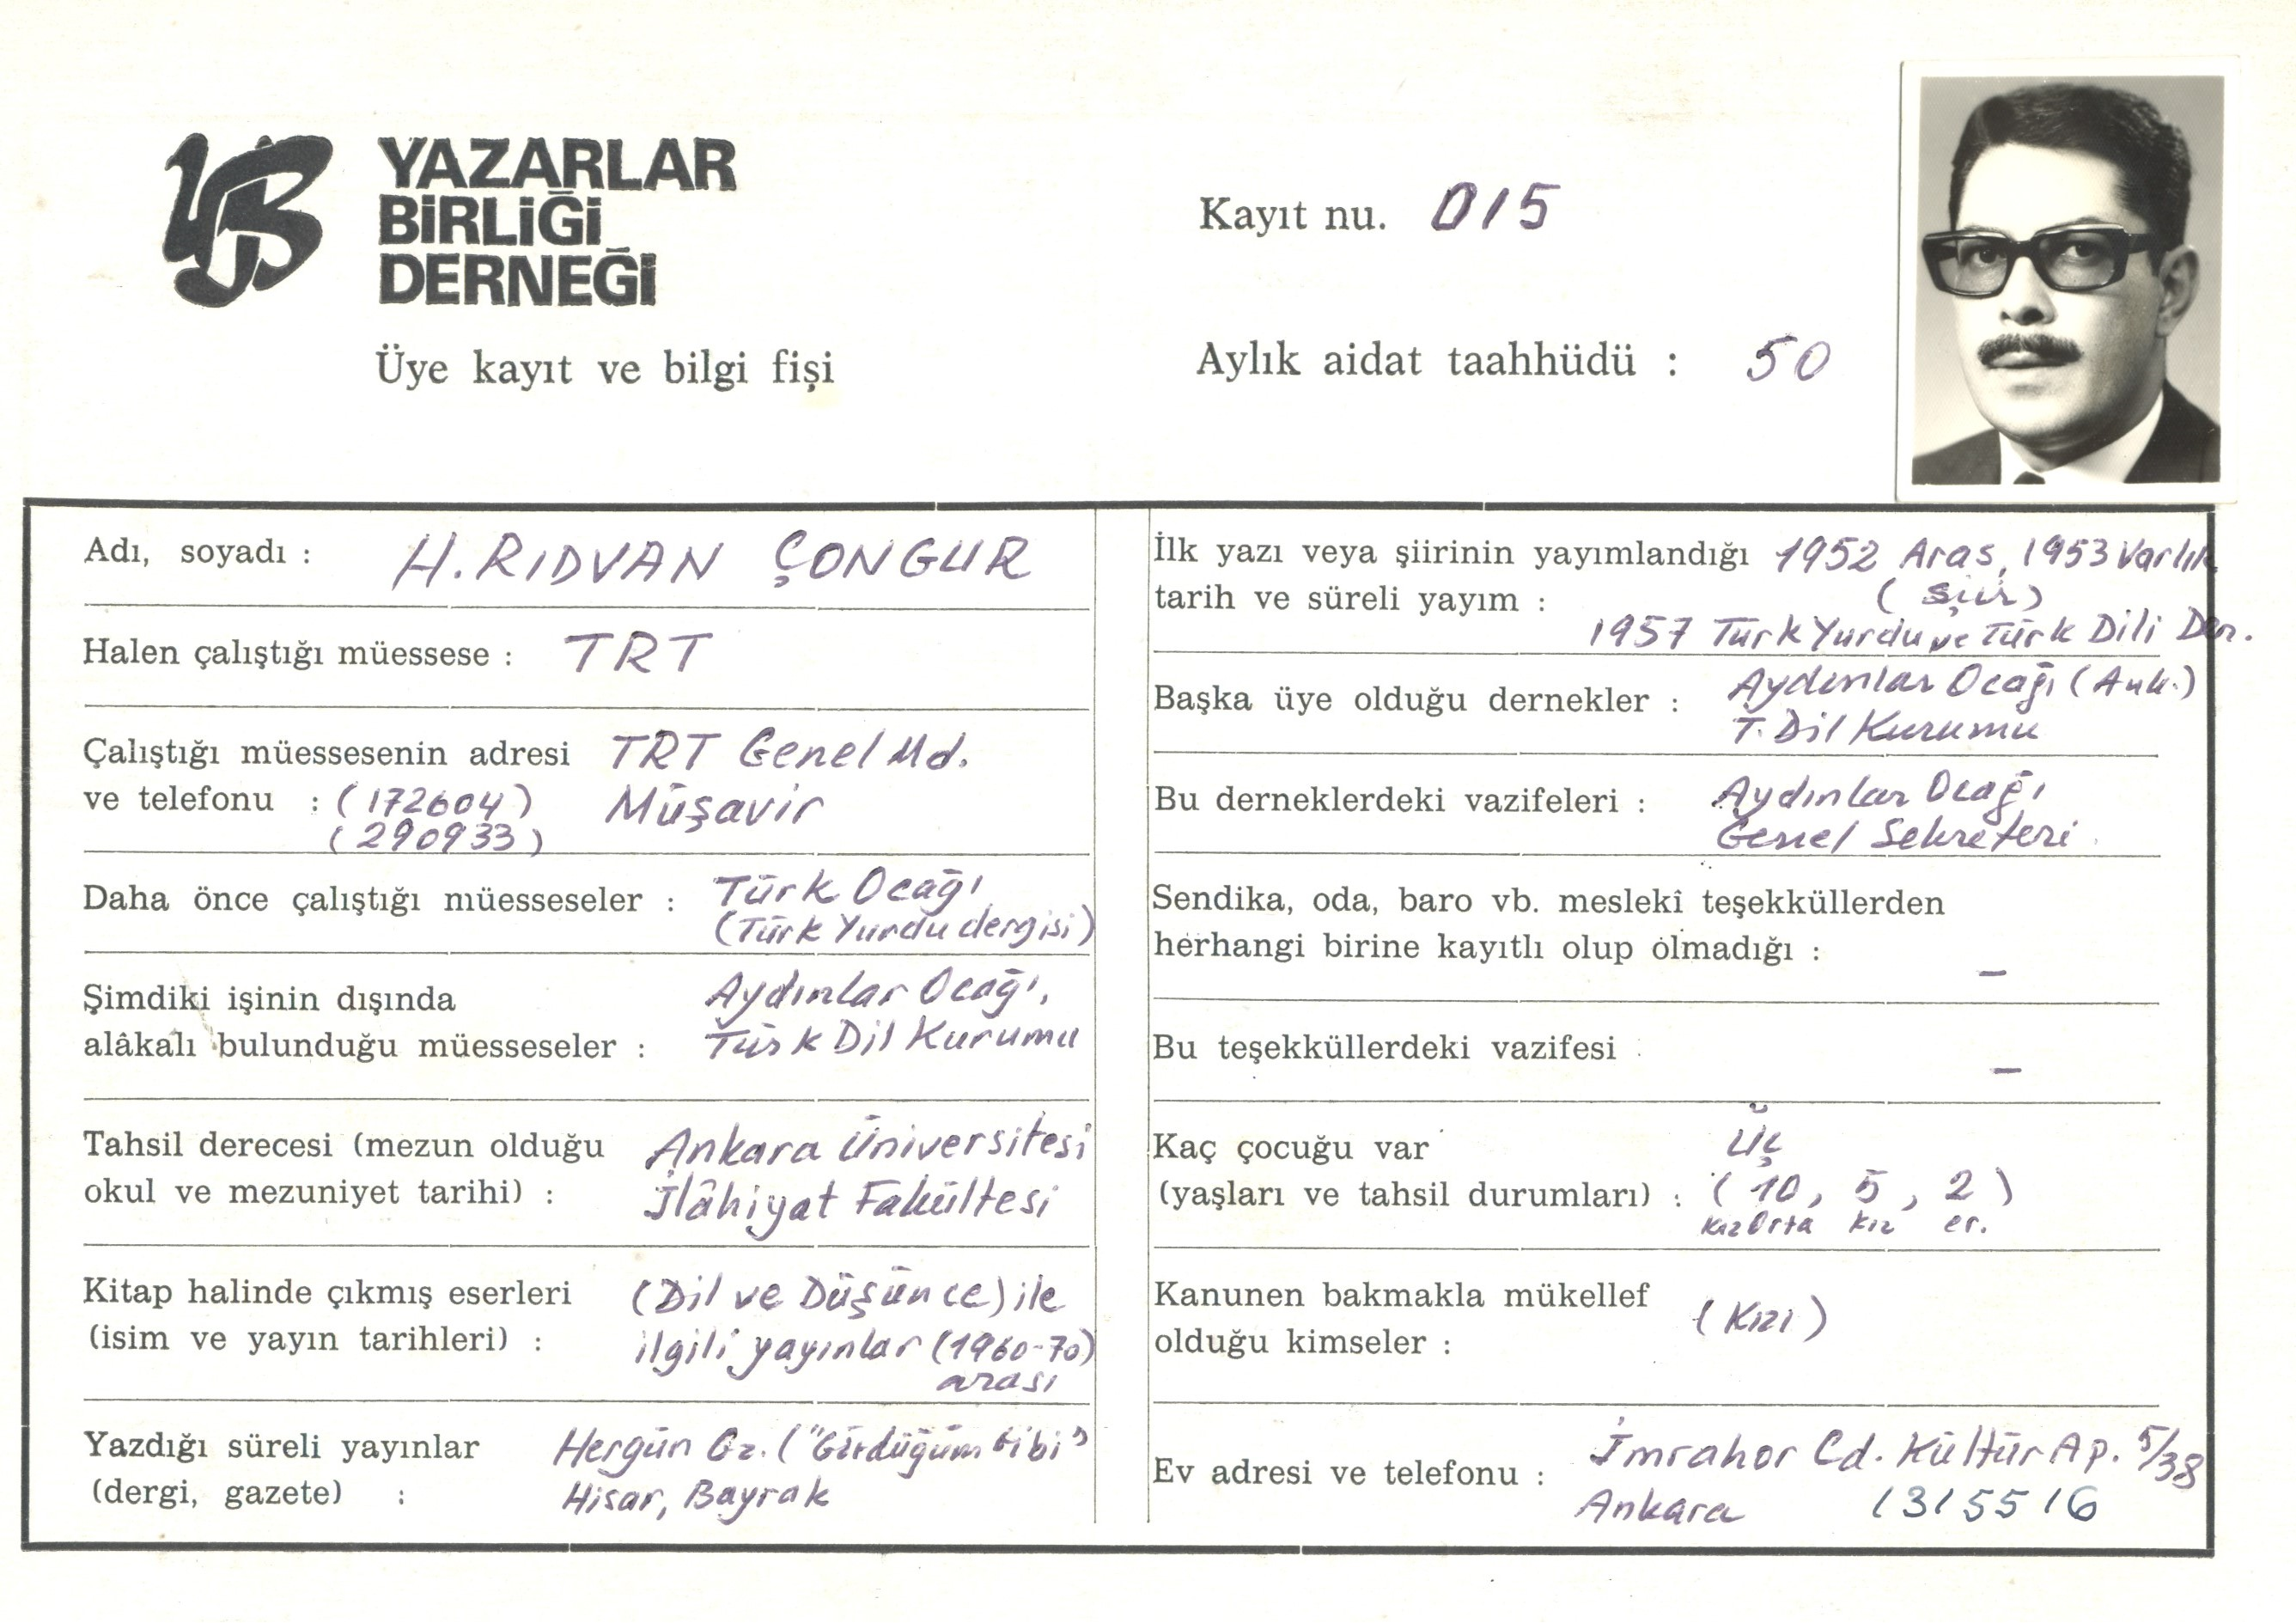 YAZARLAR
BİRLİĞİ
DERNEĞİ
Üye kayıt ve bilgi fişi
Kayıt nu. 015
Aylık aidat taahhüdü : 50
Adı, soyadı : H. RIDVAN ÇONGUR
Halen çalıştığı müessese : TRT
Çalıştığı müessesenin adresi TRT Genel Md.
ve telefonu : (172604) Müşavir
(290933)
Daha önce çalıştığı müesseseler : Türk Ocağı
(Türk Yurdu dergisi)
Şimdiki işinin dışında Aydınlar Ocağı,
alâkalı bulunduğu müesseseler : Türk Dil Kurumu
Tahsil derecesi (mezun olduğu Ankara Üniversitesi
okul ve mezuniyet tarihi) : İlâhiyat Fakültesi
Kitap halinde çıkmış eserleri (Dil ve Düşünce) ile
(isim ve yayın tarihleri) : ilgili yayınlar (1960-70)
arası
Yazdığı süreli yayınlar Hergün Gz. ("Gördüğüm Gibi")
(dergi, gazete) : Hisar, Bayrak
İlk yazı veya şiirinin yayımlandığı 1952 Aras, 1953 Varlık
tarih ve süreli yayım : (şiir)
1957 Türk Yurdu ve Türk Dili Der.
Başka üye olduğu dernekler : Aydınlar Ocağı (Ank.)
T. Dil Kurumu
Bu derneklerdeki vazifeleri : Aydınlar Ocağı
Genel Sekreteri
Sendika, oda, baro vb. meslekî teşekküllerden
herhangi birine kayıtlı olup olmadığı : –
Bu teşekküllerdeki vazifesi : –
Kaç çocuğu var Üç
(yaşları ve tahsil durumları) : (10, 5, 2)
kız Orta kız er.
Kanunen bakmakla mükellef (Kızı)
olduğu kimseler :
Ev adresi ve telefonu : İmrahor Cd. Kültür Ap. 5/38
Ankara 1315516